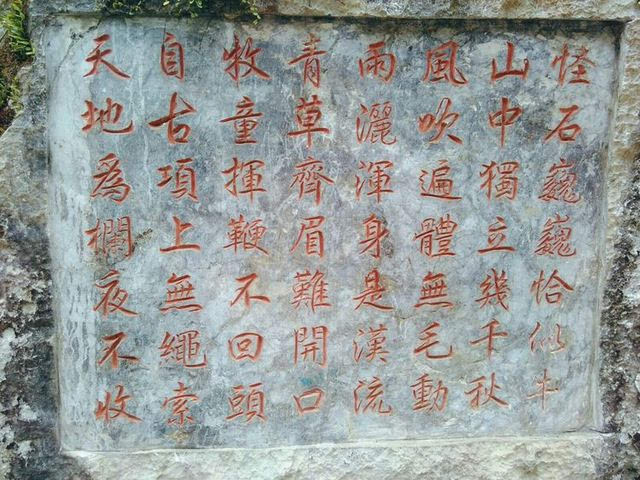 怪石巍巍恰似牛
山中獨立幾千秋
風吹遍體無毛動
雨灑渾身是漢流
青草齊眉難開口
牧童揮鞭不回頭
自古項上無繩索
天地為欄夜不收